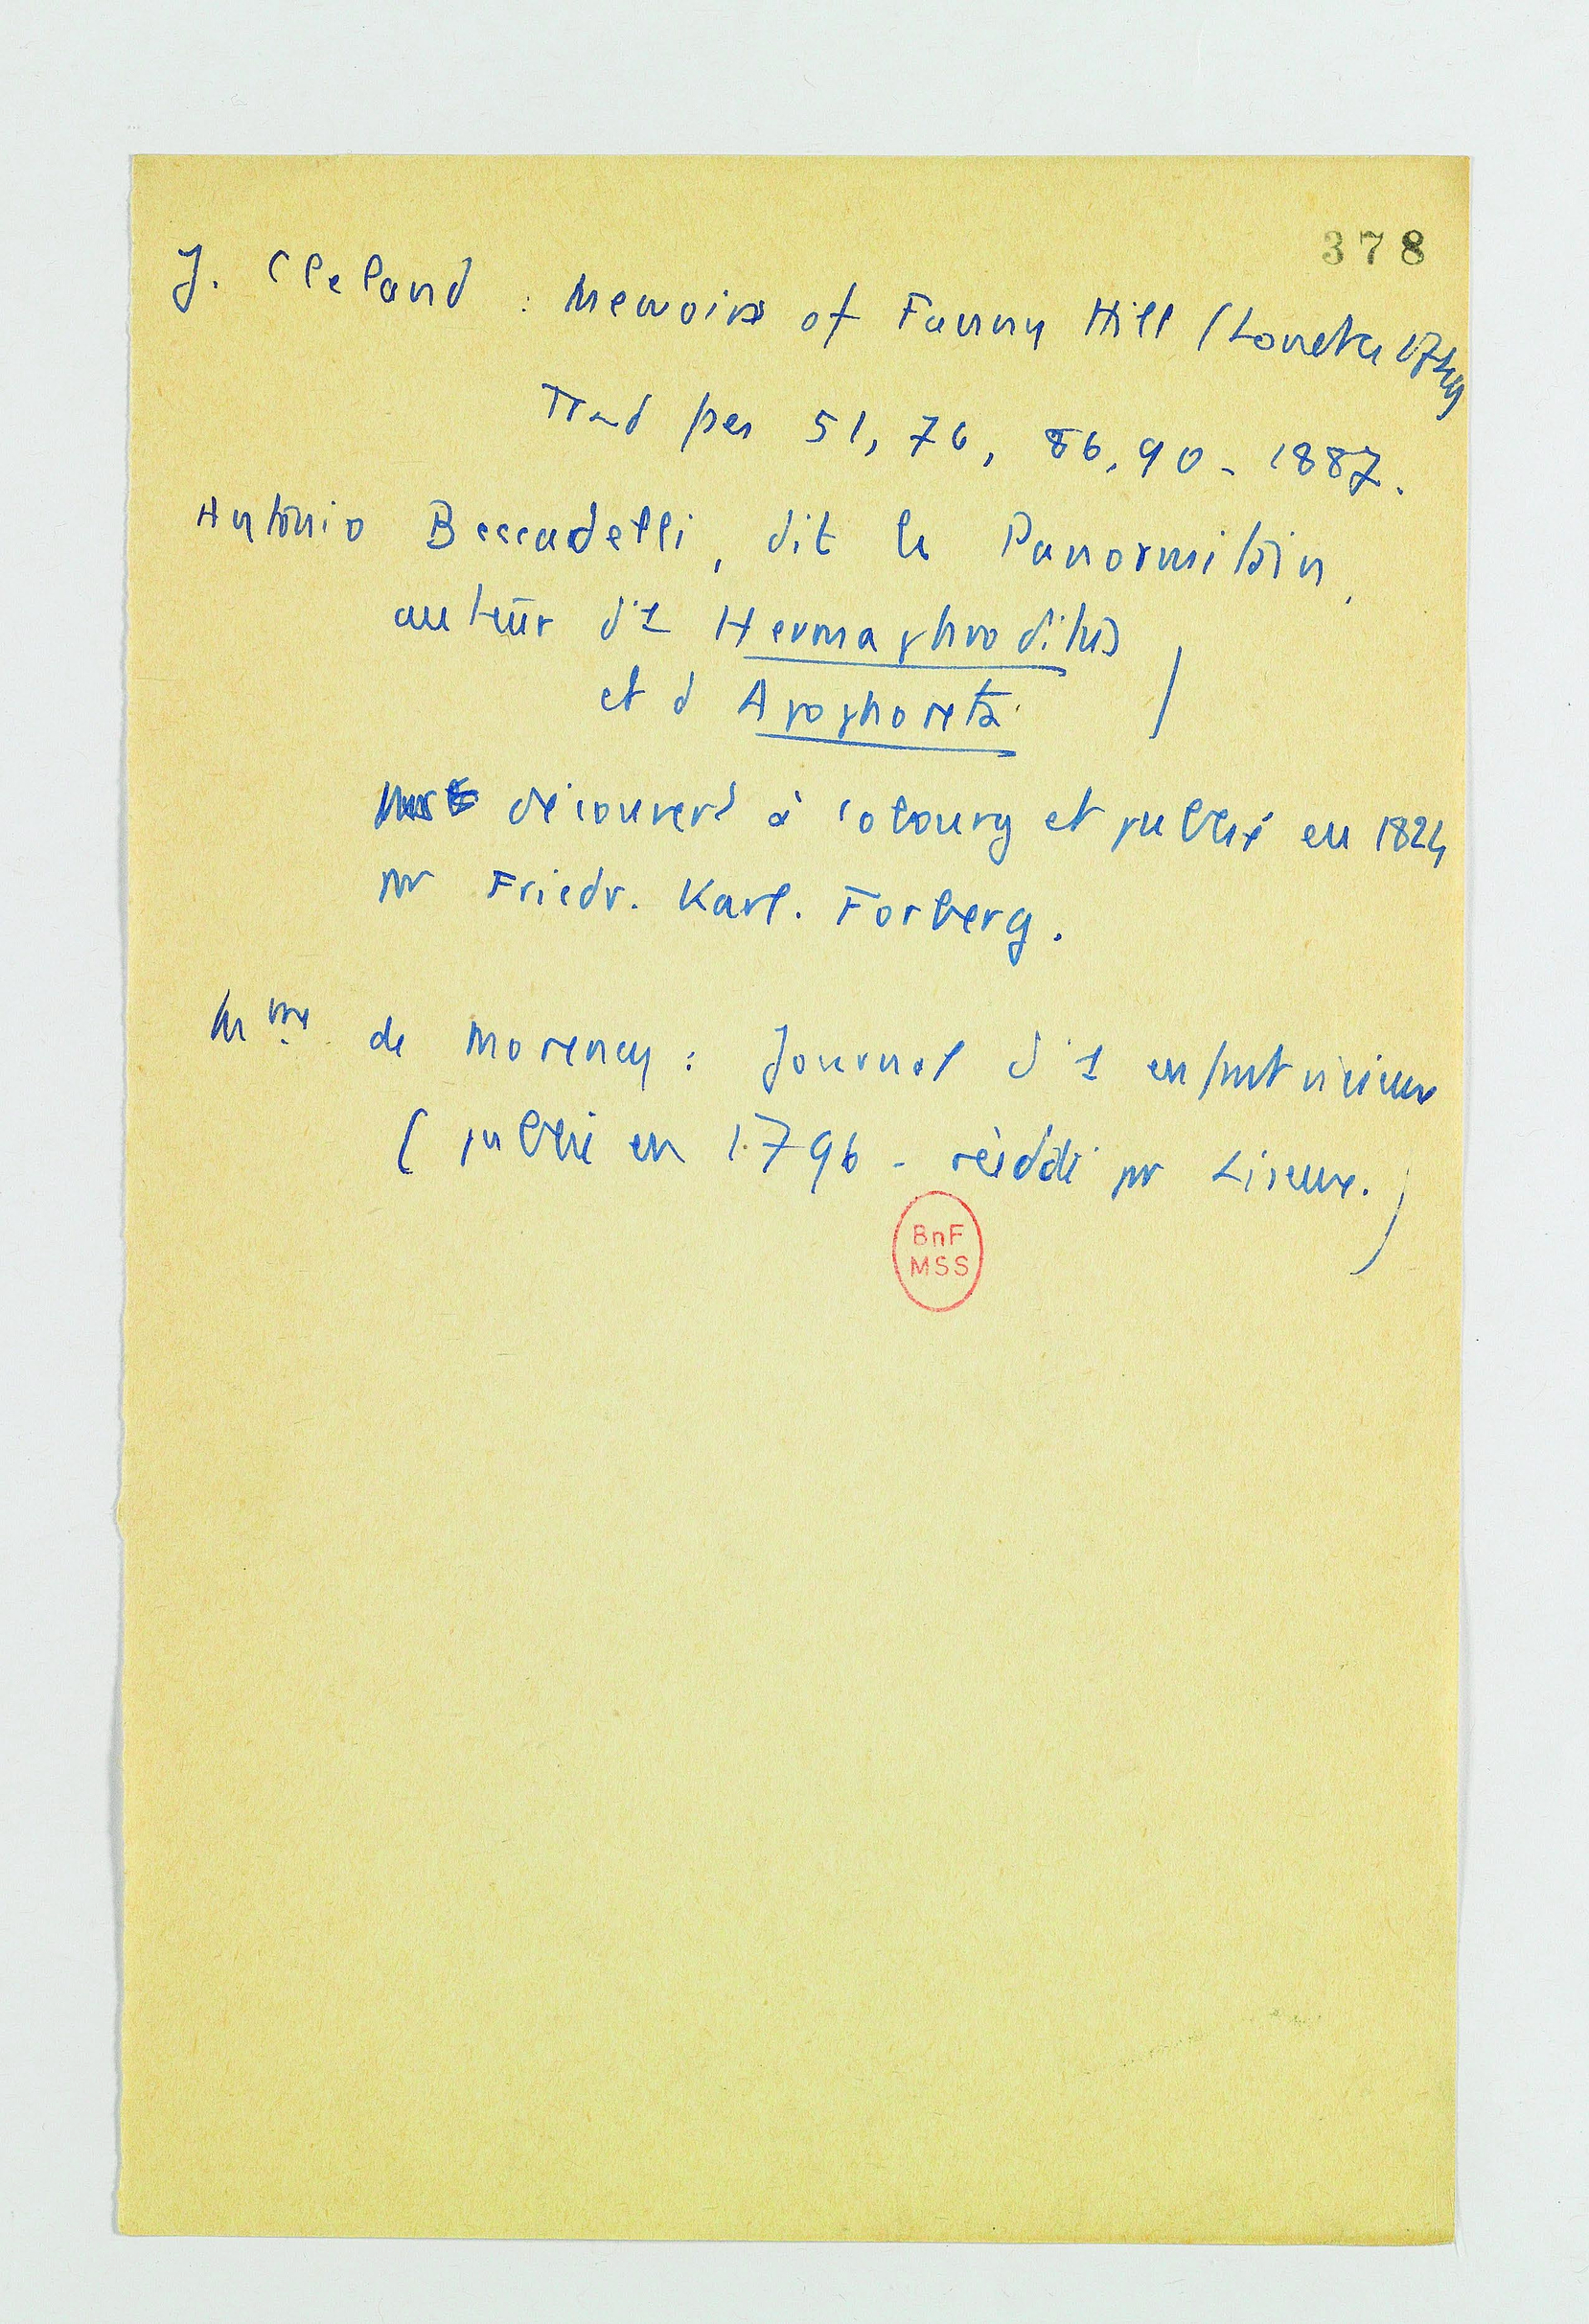 378
J. Cleland : Memoirs of Fanny Hill (Londres 1749
Trad fse 51, 76, 86, 90 - 1887.
Antonio Beccadelli, dit le Panormitain,
auteur d'1 Hermaphroditus
et d Apophoreta )
découvert à Cobourg et publié en 1824
par Friedr. Karl. Forberg.
Mme de Morency : Journal d'1 enfant vicieux
( publié en 1796 - réédité par Liseux. )
BnF
MSS